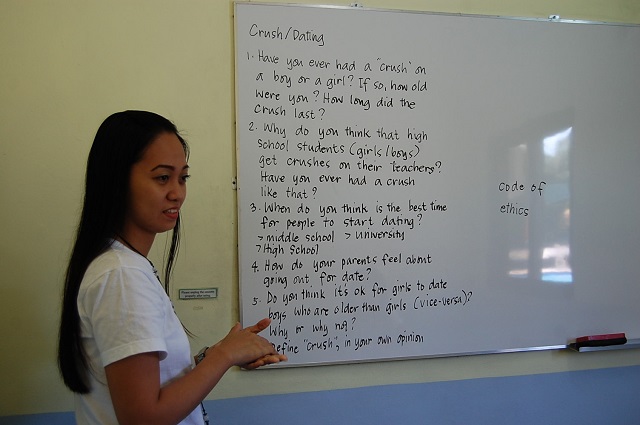 Crush/Dating
1. Have you ever had a "crush" on
a boy or a girl? If so, how old
were you? How long did the
crush last?
2. Why do you think that high
school students (girls/boys)
get crushes on their teachers?
Have you ever had a crush
like that?
3. When do you think is the best time
for people to start dating?
> middle school > university
> High School
4. How do your parents feel about
going out for date?
5. Do you think it's ok for girls to date
boys who are older than girls (vice-versa)?
Why or why not?
Define "crush", in your own opinion
code of
ethics